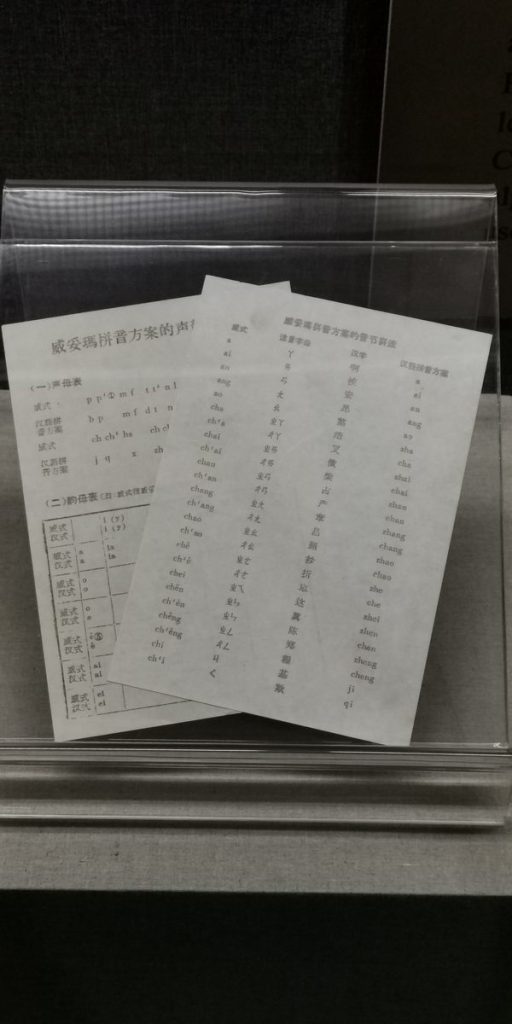 威妥瑪拼音方案的声
(一)声母表
威式 p p' ① m f t t' n l
汉语拼音方案 b p m f d t n
威式 ch ch' hs ch
汉语拼音方案 j q x zh
(二)韵母表
威式 i (y)
汉式 i (y)
威式 a ia
汉式 a ia
威式 o
汉式 o
威式 o
汉式 e
威式 ê
汉式 ê
威式 ai
汉式 ai
威式 ei
汉式 ei
威妥瑪拼音方案的音节读法
威式 注音字母 汉字 汉语拼音方案
a ㄚ 啊 a
ai ㄞ 挨 ai
an ㄢ 安 an
ang ㄤ 昂 ang
ao ㄠ 熬 ao
cha ㄓㄚ zha
ch'a ㄔㄚ 叉 cha
chai ㄓㄞ zhai
ch'ai ㄔㄞ 柴 chai
chan ㄓㄢ 占 zhan
ch'an ㄔㄢ 产 chan
chang ㄓㄤ zhang
ch'ang ㄔㄤ chang
chao ㄓㄠ zhao
ch'ao ㄔㄠ chao
chê ㄓㄜ 折 zhe
ch'ê ㄔㄜ che
chei ㄓㄟ 这 zhei
chên ㄓㄣ 真 zhen
ch'ên ㄔㄣ 陈 chen
chêng ㄓㄥ 郑 zheng
ch'êng ㄔㄥ 程 cheng
chi ㄐ 基 ji
ch'i ㄑ 欺 qi